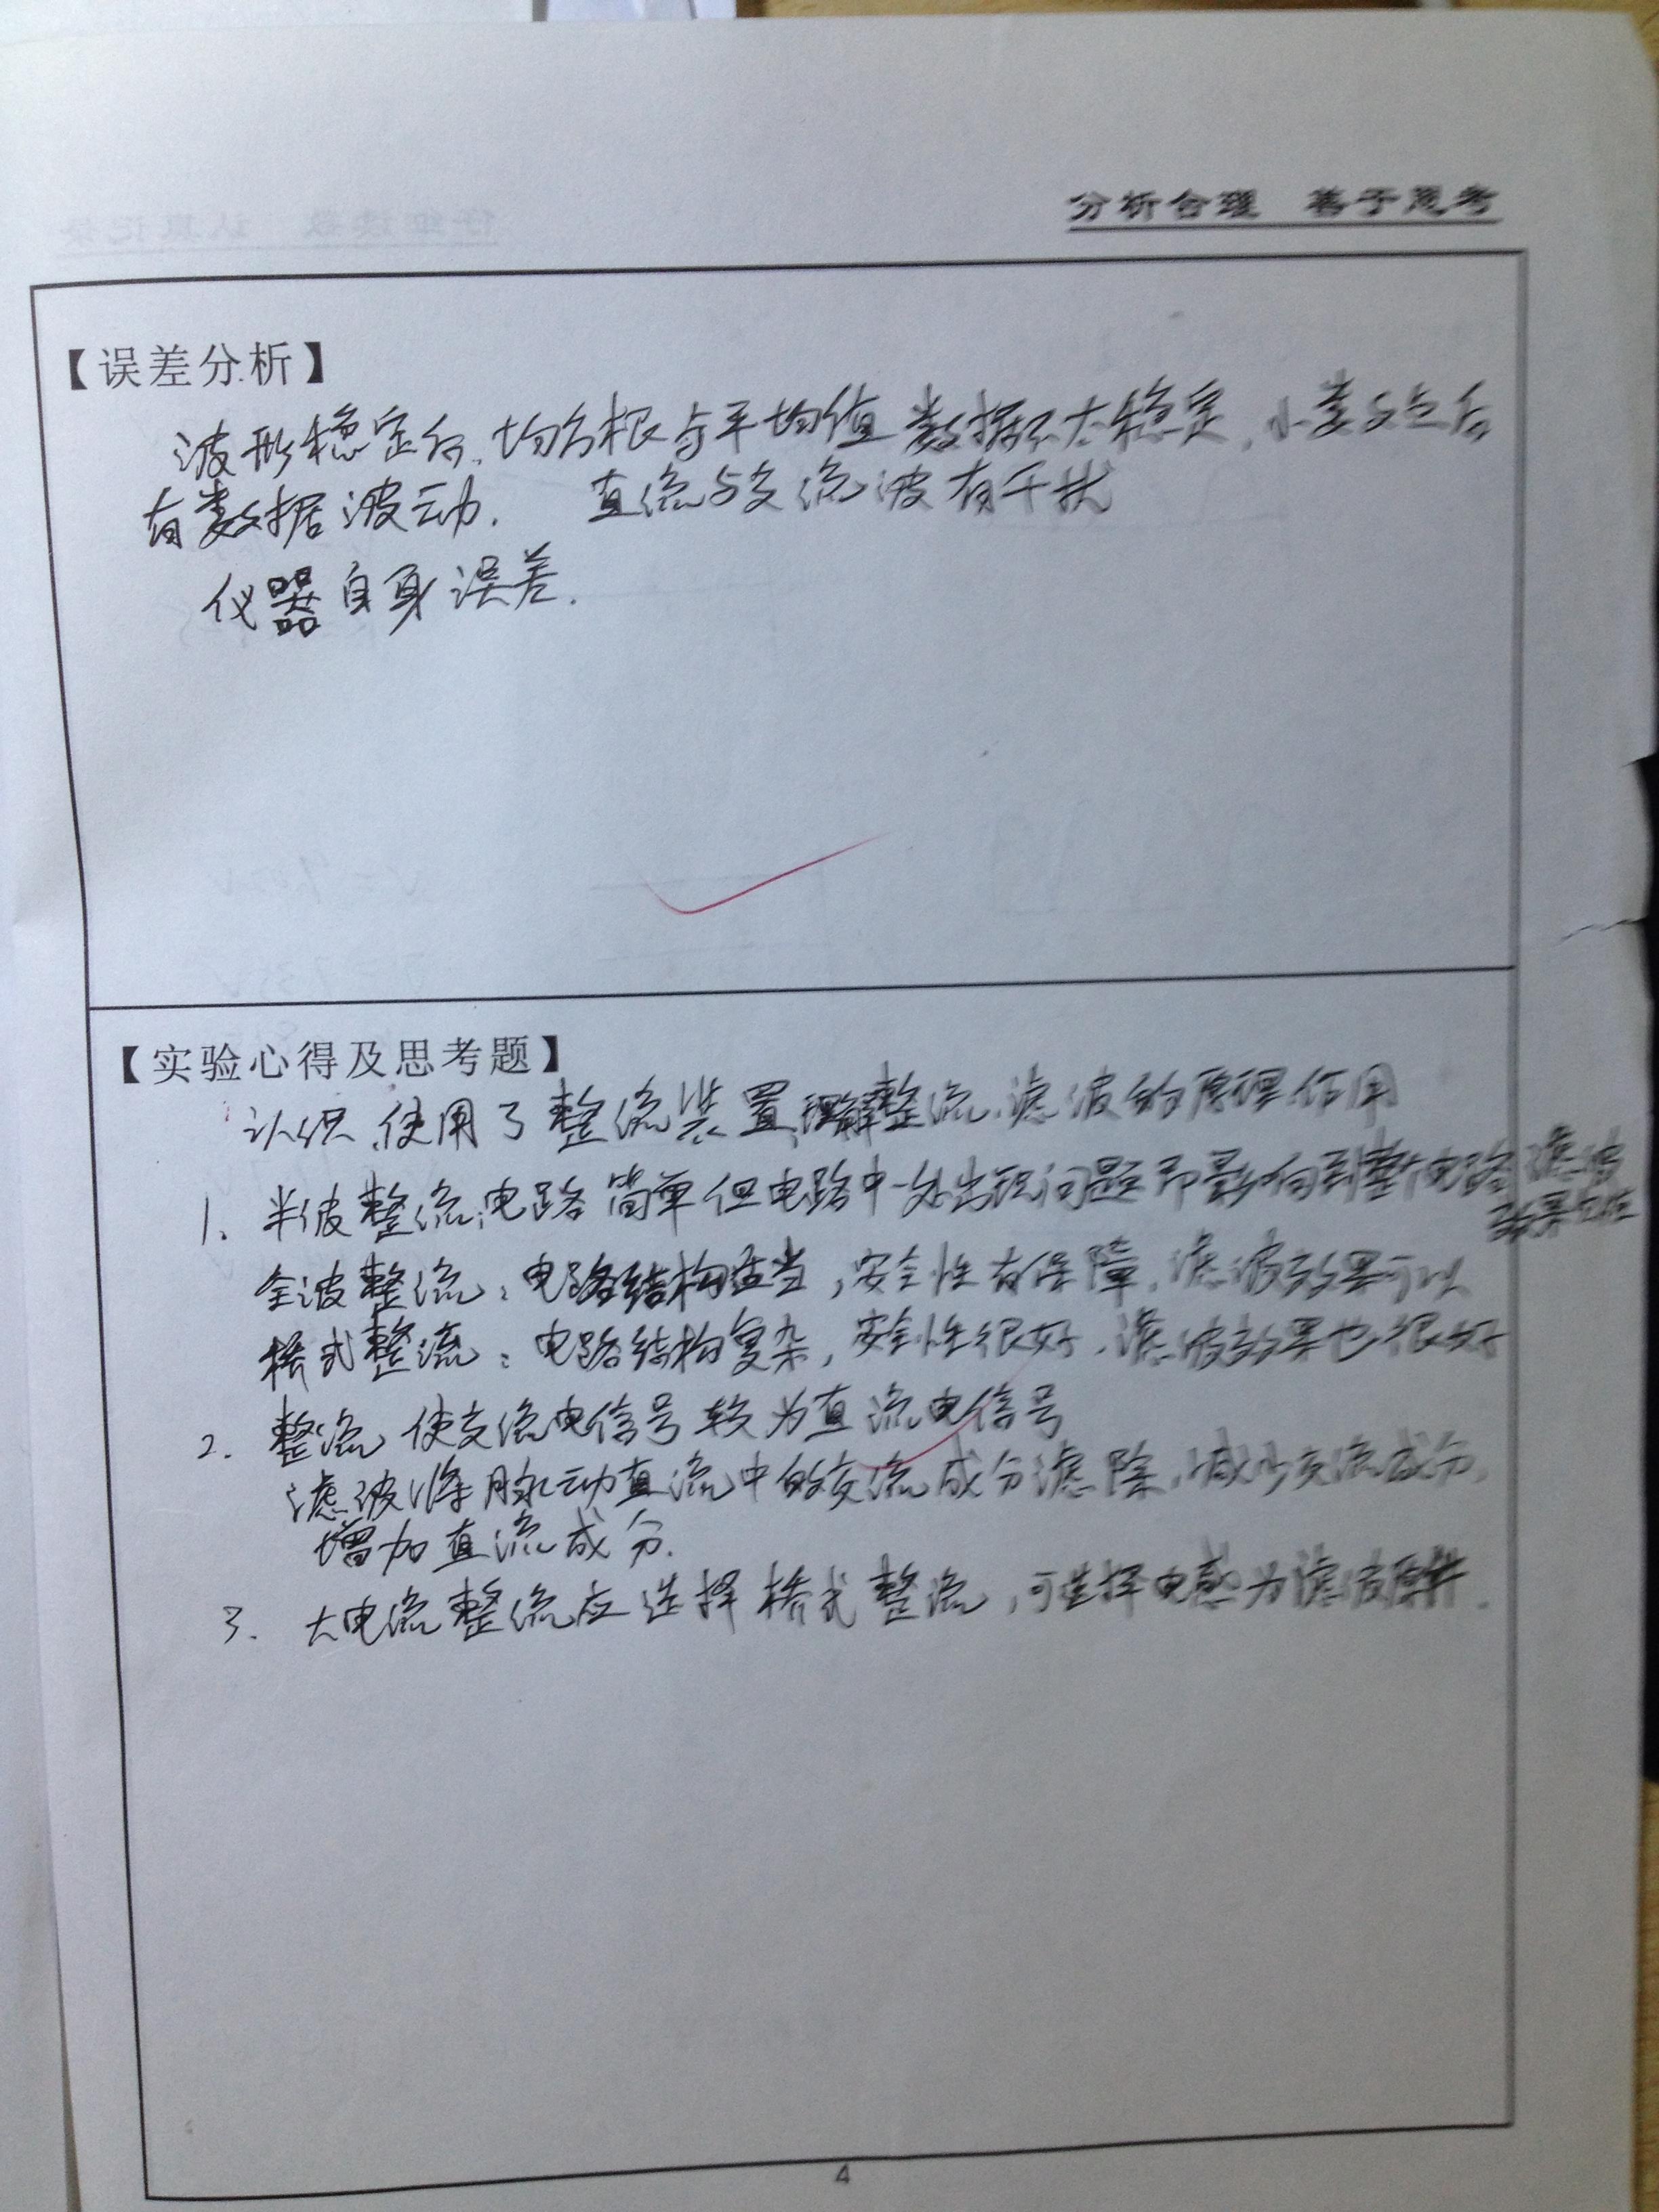 分析合理 善于思考
【误差分析】
波形稳定后，均方根与平均值数据不太稳定，小
有数据波动. 直流与交流波有干扰
仪器自身误差.
【实验心得及思考题】
认识、使用了整流装置，理解整流、滤波的原理作用
1. 半波整流：电路简单但电路中一处出现问题即影响到整个电路 滤波
效果
全波整流：电路结构适当，安全性有保障，滤波效果可以
桥式整流：电路结构复杂，安全性很好，滤波效果也很好
2. 整流 使交流电信号较为直流电信号
滤波 将脉动直流中的交流成分滤除，减少交流成分，
增加直流成分.
3. 大电流整流应选择桥式整流，可选择电感为滤波原件.
4